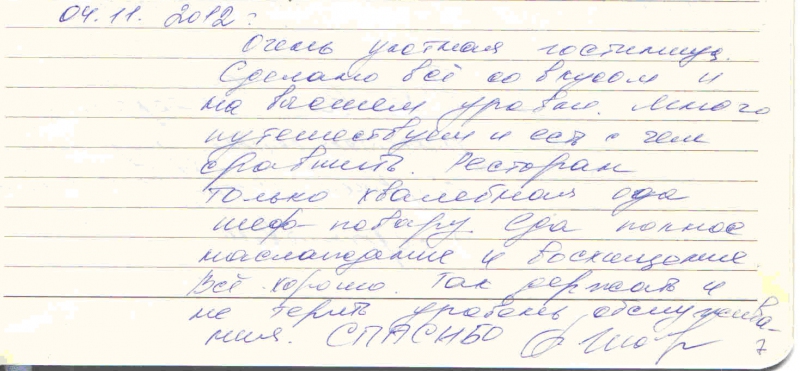 04.11. 2012г.
Очень уютная гостиница.
Сделано всё со вкусом и
на высшем уровне. Много
путешествуем и есть с чем
сравнить. Ресторан
только хвалебная ода
шеф-повару. Еда полное
наслаждение и восхищение.
Всё хорошо. Так держать и
не терять уровень обслужива-
ния. СПАСИБО
7